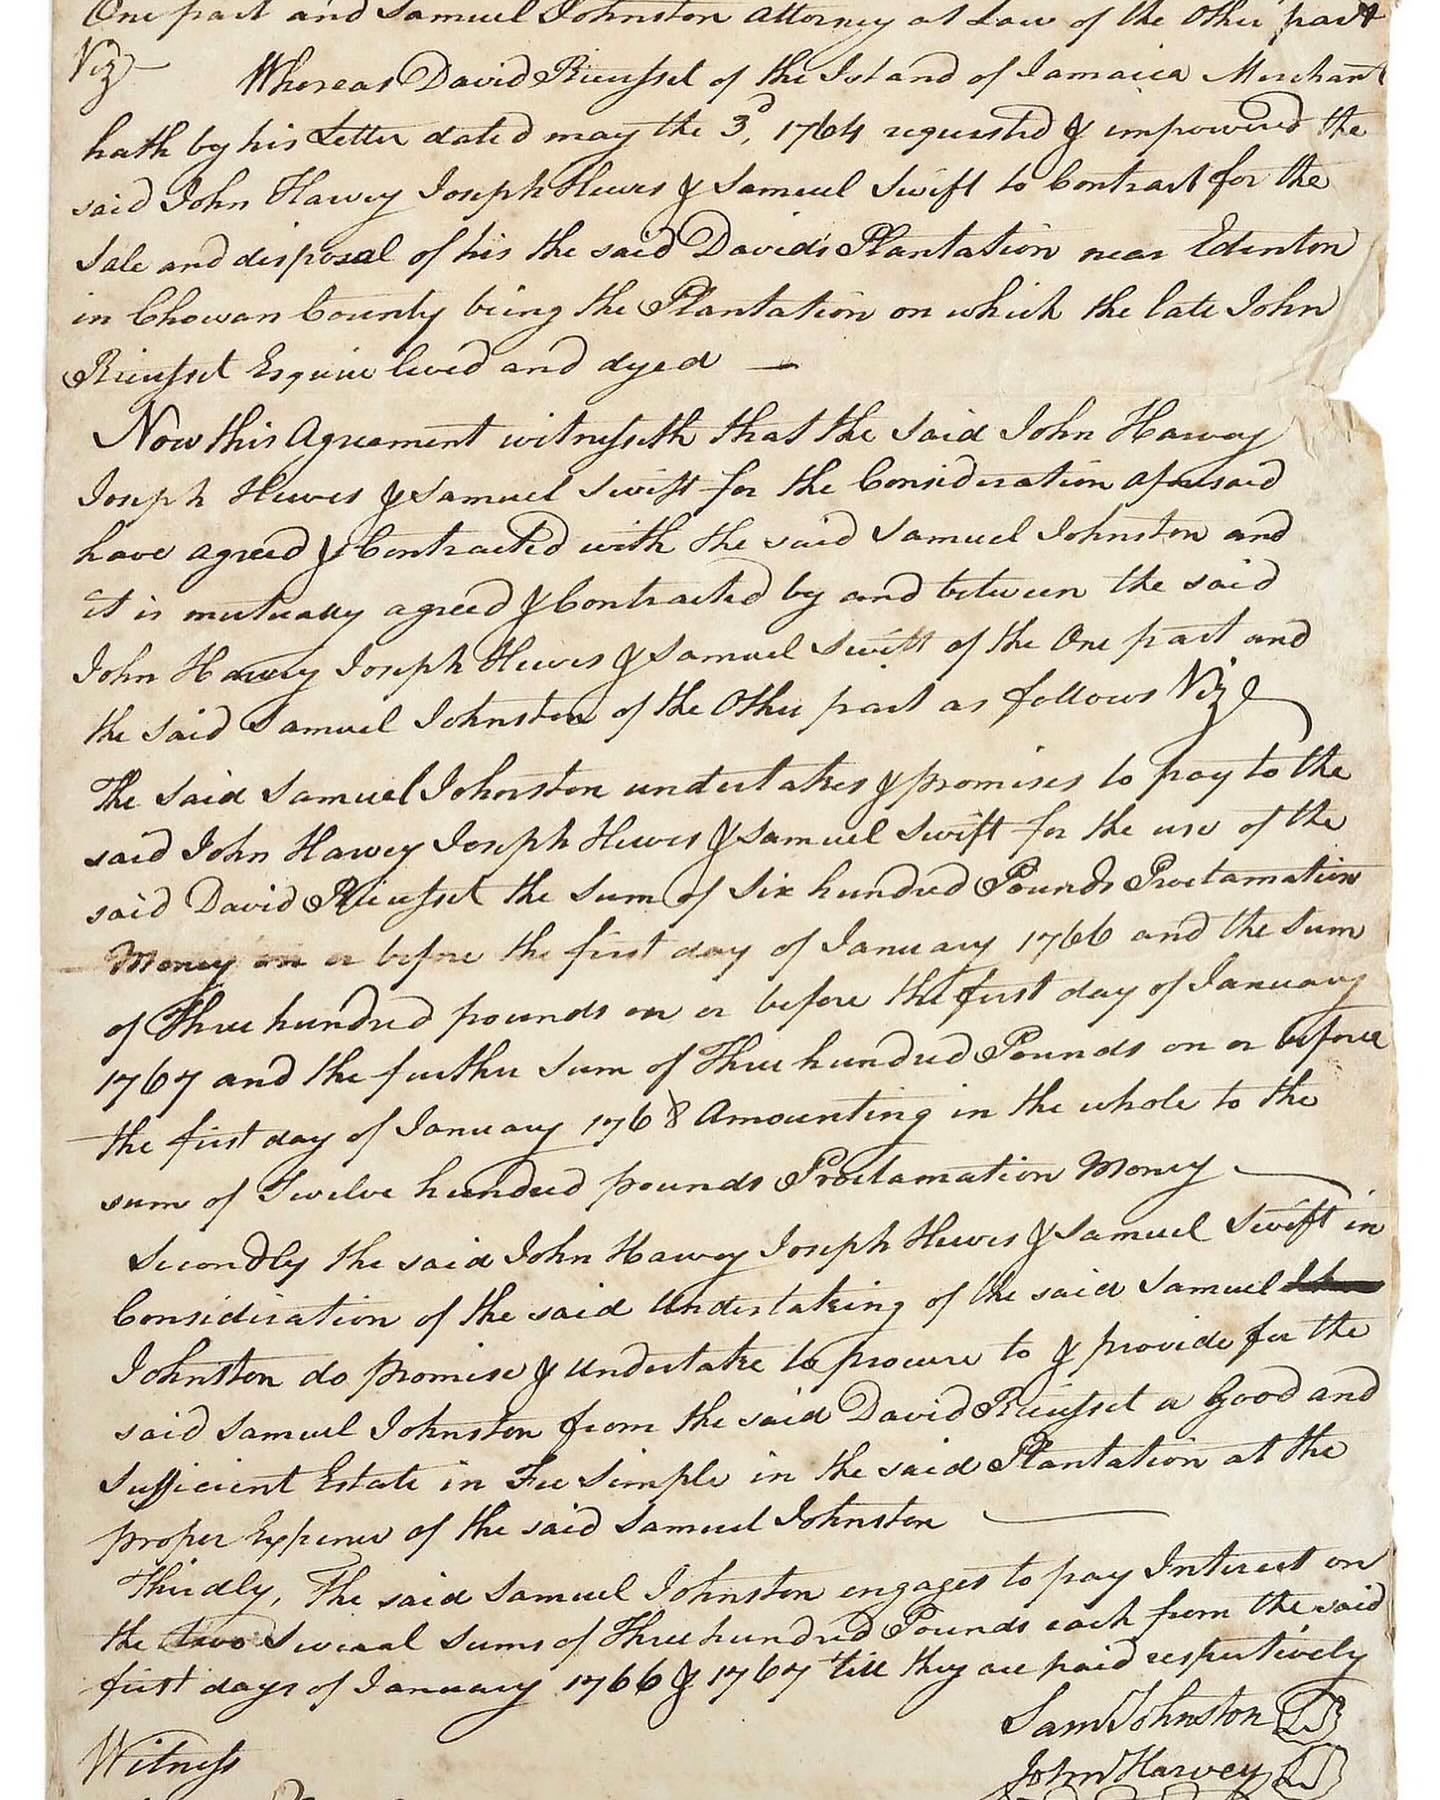 One part and Samuel Johnston Attorney at Law of the Other part
Viz
Whereas David Rieusset of the Island of Jamaica Merchant
hath by his Letter dated may the 3d, 1764 requested & impowered the
said John Harvey Joseph Hewes & Samuel Swift to Contract for the
Sale and disposal of his the said David's Plantation near Edenton
in Chowan County being the Plantation on which the late John
Rieusset Esquire lived and dyed —
Now this Agreement witnesseth that the said John Harvey
Joseph Hewes & Samuel Swift for the Consideration aforesaid
have agreed & Contracted with the said Samuel Johnston and
it is mutually agreed & Contracted by and between the said
John Harvey Joseph Hewes & Samuel Swift of the One part and
the said Samuel Johnston of the Other part as follows Viz
The said Samuel Johnston undertakes & promises to pay to the
said John Harvey Joseph Hewes & Samuel Swift for the use of the
said David Rieusset the sum of Six hundred Pounds Proclamation
Money on or before the first day of January 1766 and the Sum
of Three hundred pounds on or before the first day of January
1767 and the further Sum of Three hundred Pounds on or before
the first day of January 1768 Amounting in the whole to the
sum of Twelve hundred pounds Proclamation Money —
Secondly the said John Harvey Joseph Hewes & Samuel Swift in
Consideration of the said Undertaking of the said Samuel
Johnston do promise & undertake to procure to & provide for the
said Samuel Johnston from the said David Rieusset a Good and
Sufficient Estate in Fee Simple in the said Plantation at the
proper Expence of the said Samuel Johnston —
Thirdly, The said Samuel Johnston engages to pay Interest on
the two Several sums of Three hundred Pounds each from the said
first days of January 1766 & 1767 'till they are paid respectively
Sam Johnston
Witness
John Harvey